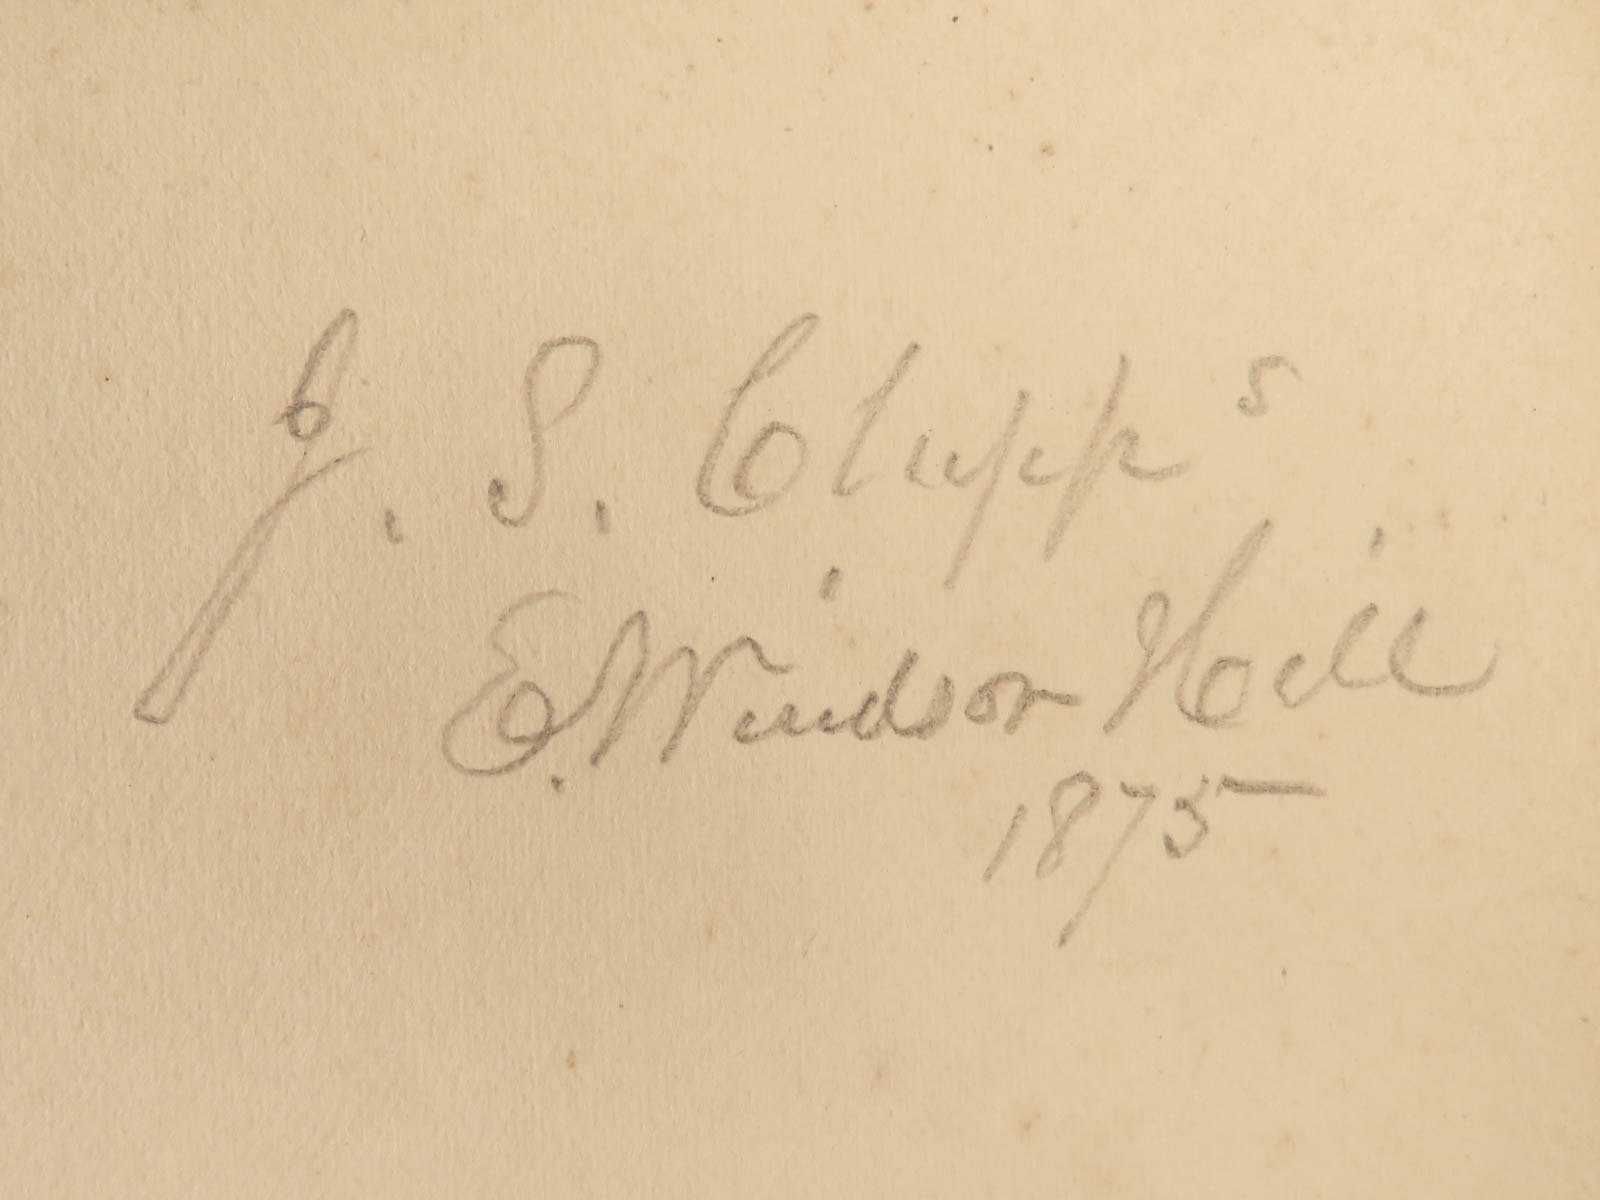 J. S. Clapp s
E. Windsor Hill
1875